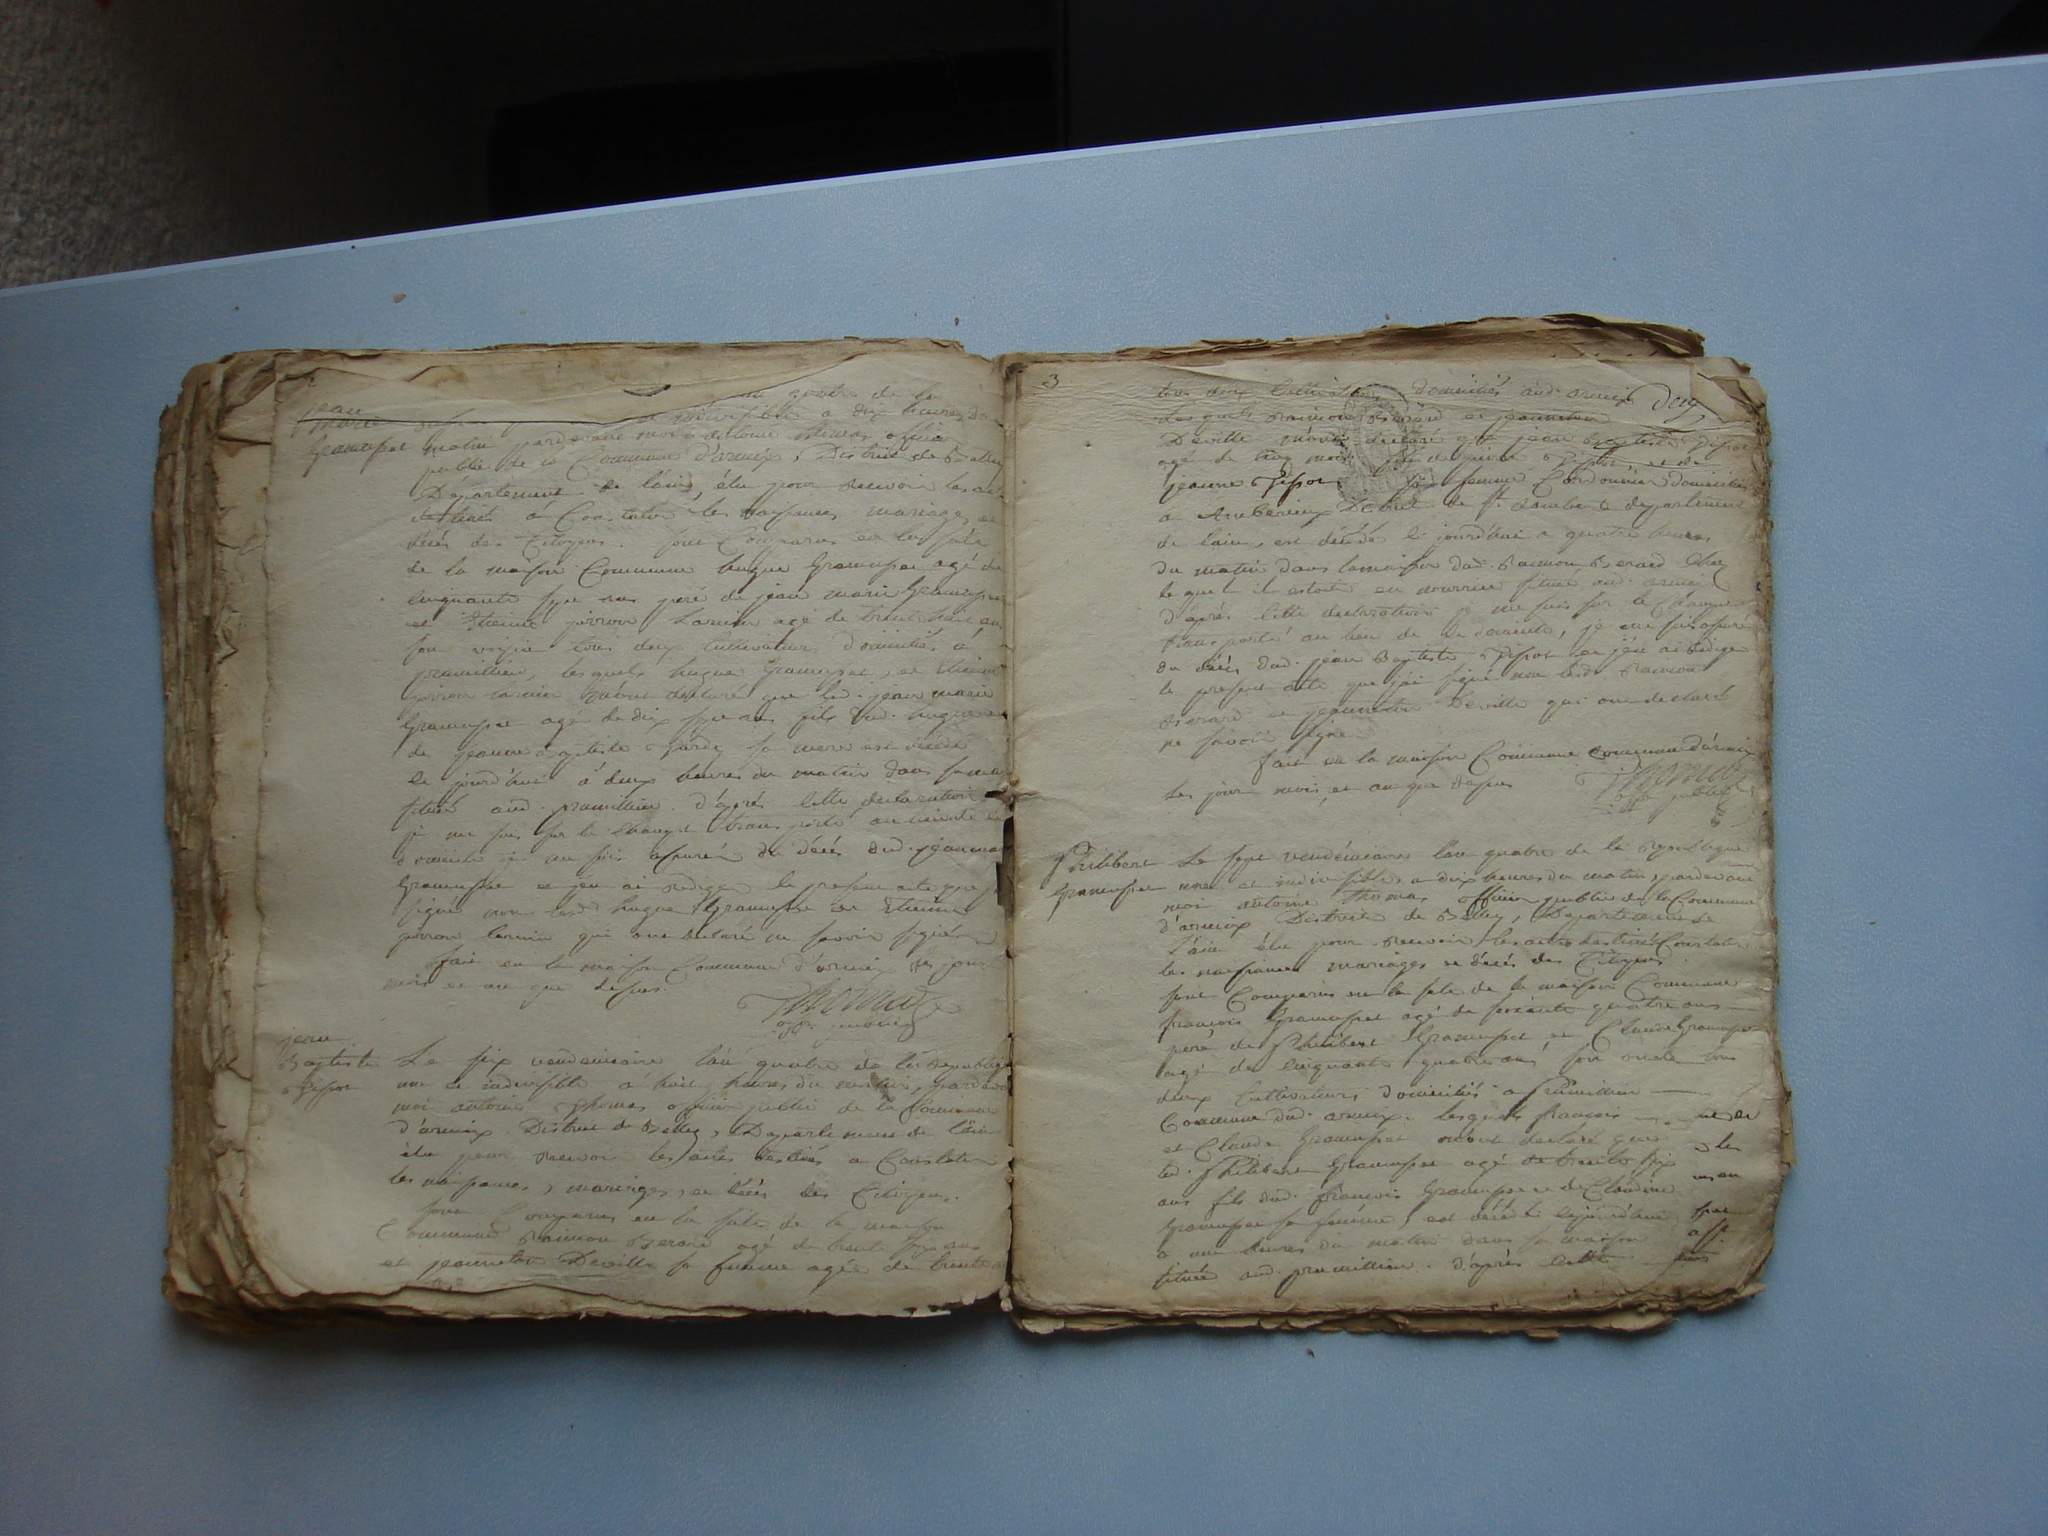 jean
marie
gramusset
quatre de la
indivisible a dix heures du
matin pardevant moi antoine thomas officier
public de la Commune d'armix, District de Belley
Département de l'ain, élu pour recevoir les actes
destinés a Constater les naissances, mariages, et
décés des Citoyens. sont Comparus en la sale
de la maison Commune hugue Gramusset agé de
Cinquante sept ans pere de jean marie Gramusset
et Etienne pirron Larmin agé de trente huit ans
son voisin tous deux Cultivateurs domiciliés a
premillieu, lesquels hugue Gramusset, et Etienne
pirron mont declaré que led. jean marie
Gramusset agé de dix sept ans fils dud. hugue et
de jeanne batiste sa mere est décédé
le jourd'hui a deux heures du matin dans sa maison
située aud. premillieu. d'aprés cette declaration
je me suis sur le champ transporté au lieu de ce
domicile je me suis assuré du décés dud. jean marie
Gramusset et j'en ai redigé le present acte que j'ai
signé non lesd. hugue Gramusset et Etienne
pirron larmin qui ont declaré ne savoir signer
fait en la maison Commune d'armix les jour
mois et an que dessus.
Thomas
off. public
jean
Baptiste
Le six vendemiaire l'an quatre de la republique
une et indivisible a huit heures du matin, pardevant
moi antoine Thomas officier public de la Commune
d'armix District de Belley, Departement de l'ain
élu pour recevoir les actes destinés a Constater
les naissances, mariages, et décés des Citoyens.
sont Comparus en la sale de la maison
Commune Raimon Berard agé de trente sept ans
et jeanneton Deville sa femme agée de trente
3
tous deux Cultivateurs domiciliés aud. armix
Lesquels Raimon Berard et jeanneton
Deville m'ont declaré que jean Baptiste
agé de cinq mois fils de et de
jeanne sa femme Cordonnier domicilié
a Amberieux District de St. Rambert departement
de l'ain, est décédé le jourd'hui a quatre heures
du matin dans la maison dud. Raimon Berard Chez
lequel il estoit en nourrice située aud. armix
d'aprés cette declaration je me suis sur le Champ
transporté au lieu de ce domicile, je me suis assuré
du décés dud. jean Baptiste et j'en ai redigé
le present acte que j'ai signé non lesd. Raimon
Berard et jeanneton Deville qui ont declaré
ne savoir signer
fait en la maison Commune Commune d'armix
les jour mois et an que dessus
Thomas
off. public
Philibert
Gramusset
Le sept vendémiaire l'an quatre de la republique
une et indivisible, a dix heures du matin, pardevant
moi antoine Thomas officier public de la Commune
d'armix District de Belley, Departement de
l'ain élu pour recevoir les actes destinés a Constater
les naissances mariages et décés des Citoyens.
sont Comparus en la sale de la maison Commune
françois Gramusset agé de soixante quatre ans
pere de Philibert Gramusset et Claude Gramusset
agé de Cinquante quatre ans son oncle tous
deux Cultivateurs domiciliés a Premillieu
Commune dud. armix. lesquels françois
et Claude Gramusset m'ont declaré que
led. Philibert Gramusset agé de trente six
ans fils dud. françois Gramusset et de Claudine
Gramusset sa femme, est décédé le jourd'hui
a une heures du matin dans sa maison
située aud. premillieu. d'aprés cette